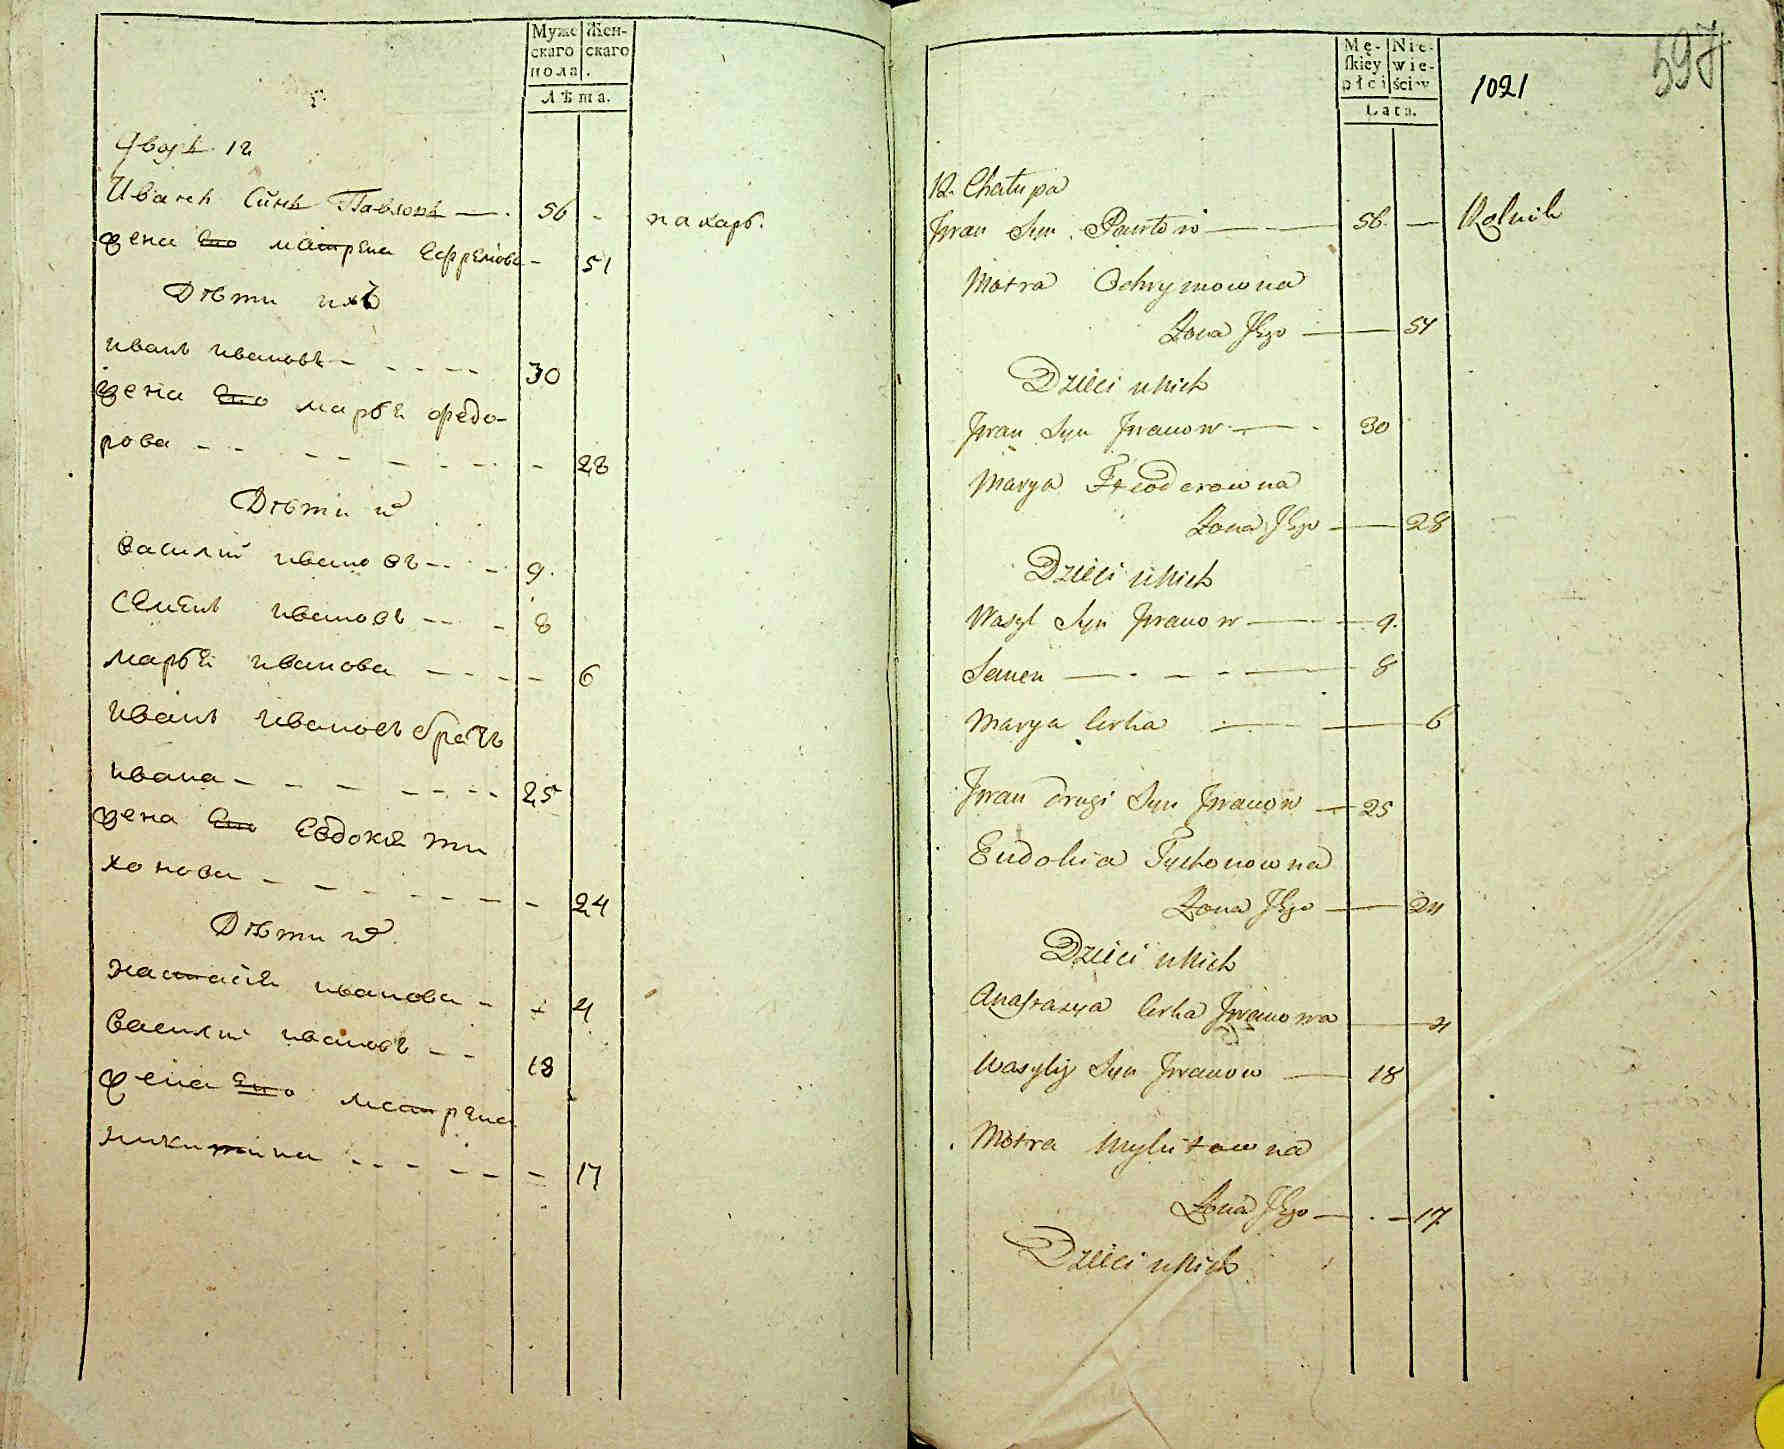 Муже Жен-
скаго скаго
пола .
Лѣта.
Дворъ 12
Иванъ Сынъ Павловъ — . 56 - пахарь.
жена Его матрена Ефремова - 51
Дѣти ихъ
иванъ ивановъ - - - - - 30
жена Его марья федо-
рова - - - - - - - - 28
Дѣти их
василий ивановъ - - - 9.
Семенъ ивановъ - - - 8
марья иванова - - - - - 6
иванъ ивановъ братъ
ивана - - - - - - - 25
жена Его Евдокия ти
хонова - - - - - - - - 24
Дѣти их
настасия иванова - + 4
василий ивановъ - - 18
жена Его матрена
никитина - - - - - - 17
Mę- Nie-
skiey wie-
płci ściey
Lata.
1021
597
12. Chałupa
Jwan Syn Pawłow — — 56. — Rolnik
Motra Ochrymowna
Żona Jego — — 51
Dzieci u Nich
Jwan Syn Jwanow — - 30
Marya Fteoderowna
Żona Jego — — 28
Dzieci u Nich
Wasyl Syn Jwanow — - — 9.
Semen — - — - — 8
Marya Corka — — 6
Jwan drugi Syn Jwanow — 25
Eudokia Tychonowna
Żona Jego — — 24
Dzieci u Nich
Anastazya Corka Jwanowa — 4
Wasylij Syn Jwanow — 18
Motra Mykitowna
Żona Jego — . — 17
Dzieci u Nich